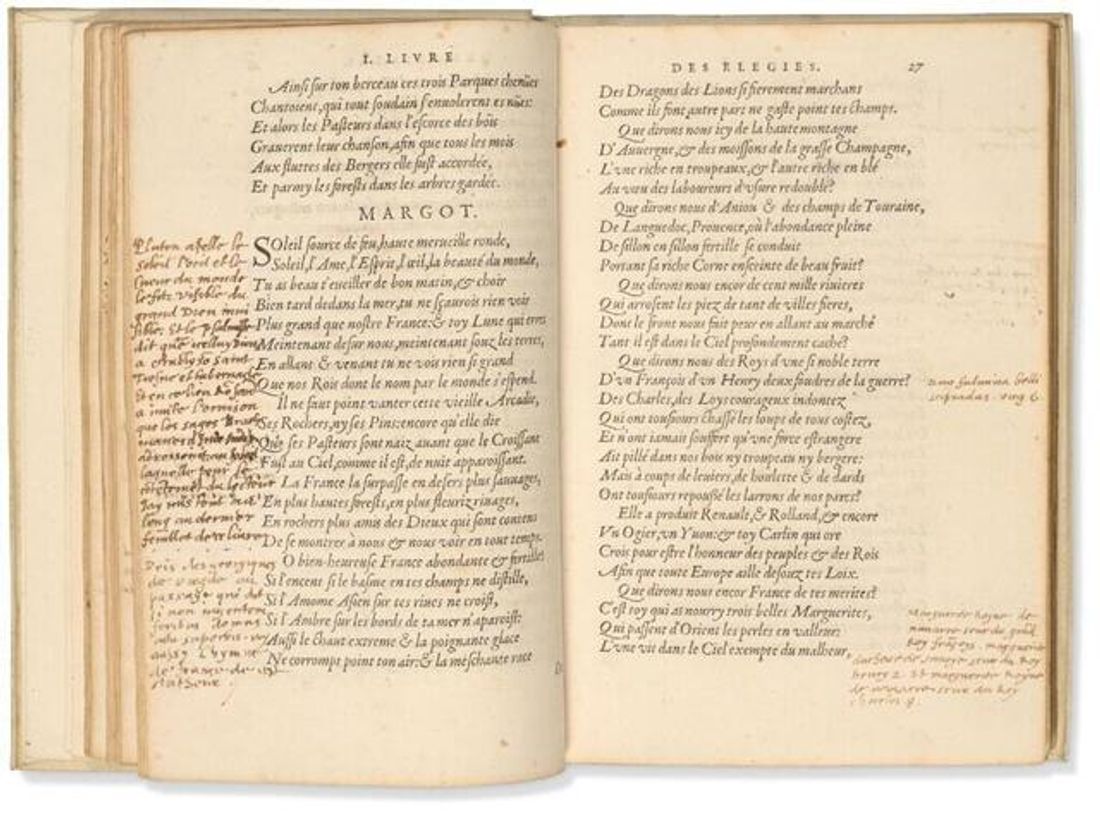 I. LIVRE
Ainsi sur ton berceau ces trois Parques chenües
Chantoient, qui tout soudain s'envolerent es nües:
Et alors les Pasteurs dans l'escorce des bois
Graverent leur chanson, afin que tous les mois
Aux fluttes des Bergers elle fust accordée,
Et parmy les forests dans les arbres gardée.
MARGOT.
SOleil source de feu, haute merveille ronde,
Soleil, l'Ame, l'Esprit, l'œil, la beauté du monde,
Tu as beau t'eveiller de bon matin, & choir
Bien tard dedans la mer, tu ne sçaurois rien voir
Plus grand que nostre France: & toy Lune qui erres
Meintenant desur nous, meintenant souz les terres,
En allant & venant tu ne vois rien si grand
Que nos Rois dont le nom par le monde s'espend.
Il ne faut point vanter ceste vieille Arcadie,
Ses Rochers, ny ses Pins: encore qu'elle die
Que ses Pasteurs sont naiz avant que le Croissant
Fust au Ciel, comme il est, de nuit apparoissant.
La France la surpasse en desers plus sauvages,
En plus hautes forests, en plus fleuriz rivages,
En rochers plus amis des Dieux qui sont contens
De se montrer à nous & nous voir en tout temps.
O bien-heureuse France abondante & fertille!
Si l'encent si le basme en tes champs ne distille,
Si l'Amome Asien sur tes rives ne croist,
Si l'Ambre sur les bords de ta mer n'aparoist:
Aussi le chaut extreme & la poignante glace
Ne corrompt point ton air: & la meschante race
Platon apelle le
soleil l'oeil et le
cueur du monde
le filz visible du
grand Dieu invi
sible. Et le
dit que
a
que les sages
laquelle pour le
contentement du lecteur
jay mis tout du
long au dernier
feuillet de ce livre
de virgile au
passage qui dit
aussy l'hymne
de france de
l'autheur
DES ELEGIES. 27
Des Dragons des Lions si fierement marchans
Comme ils font autre part ne gaste point tes champs.
Que dirons nous icy de la haute montagne
D'Auvergne, & des moissons de la grasse Champagne,
L'vne riche en troupeaux, & l'autre riche en blé
Au vœu des laboureurs d'vsure redoublé?
Que dirons nous d'Aniou & des champs de Touraine,
De Languedoc, Provence, où l'abondance pleine
De sillon en sillon fertille se conduit
Portant sa riche Corne enseinte de beau fruit?
Que dirons nous encor de cent mille rivieres
Qui arrosent les piez de tant de villes fieres,
Donc le front nous fait peur en allant au marché
Tant il est dans le Ciel profondement caché?
Que dirons nous des Roys d'vne si noble terre
D'vn François d'vn Henry deux foudres de la guerre?
Des Charles, des Loys courageux indontez
Qui ont tousiours chassé les loups de tous costez,
Et n'ont iamais souffert qu'vne force estrangere
Ait pillé dans nos bois ny troupeau ny bergere:
Mais à coups de leviers, de houlette & de dards
Ont tousiours repoussé les larrons de nos parcs?
Elle a produit Renault, & Rolland, & encore
Vn Ogier, vn Yvon: & toy Carlin qui ore
Crois pour estre l'honneur des peuples & des Rois
Afin que toute Europe aille desouz tes Loix.
Que dirons nous encor France de tes merites?
C'est toy qui as nourry trois belles Marguerites,
Qui passent d'Orient les perles en valleur:
L'vne vit dans le Ciel exempte du malheur,
duo fulmina belli
scipiadas. virg. 6.
Marguerite Royne de
navarre seur du grand
Roy françoys. marguerite
duchesse de savoye seur du Roy
henry 2. et marguerite Royne
de navarre seur du Roy
charles 9.